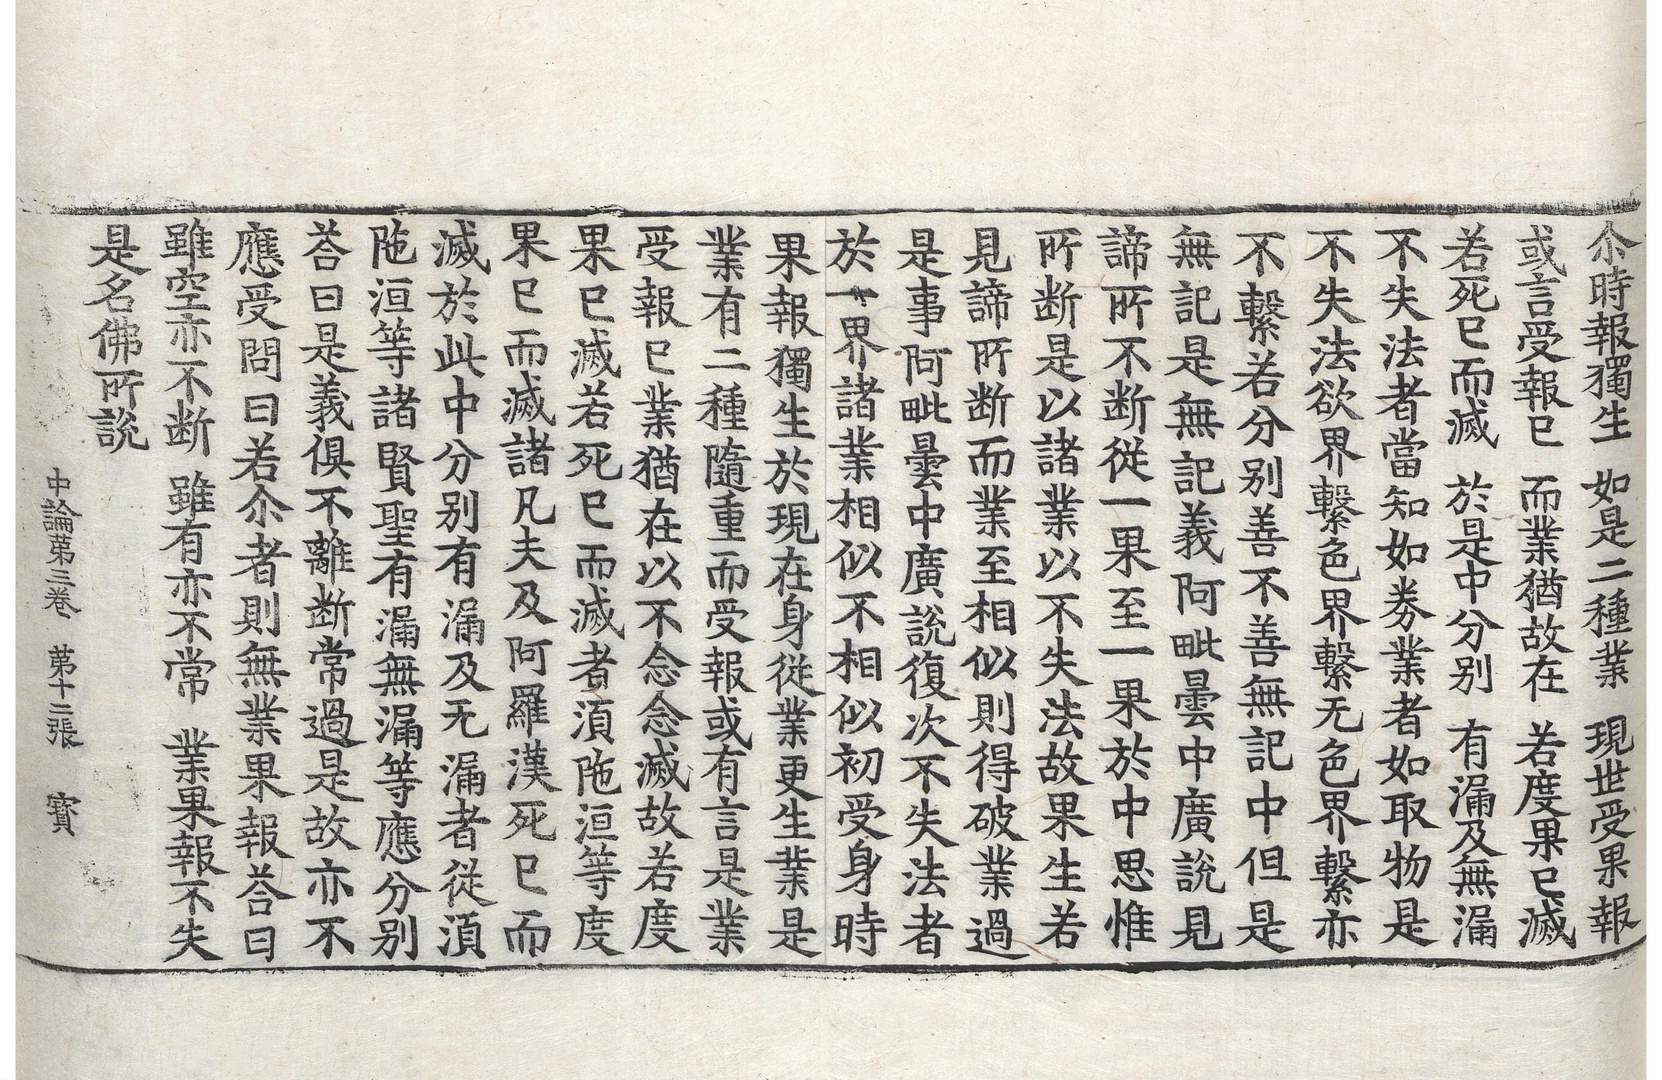 尒時報獨生　如是二種業　現世受果報
或言受報已　而業猶故在　若度果已滅
若死已而滅　於是中分别　有漏及無漏
不失法者當知如券業者如取物是
不失法欲界繫色界繫无色界繫亦
不繫若分别善不善無記中但是
無記是無記義阿毗曇中廣說見
諦所不断從一果至一果於中思惟
所断是以諸業以不失法故果生若
見諦所断而業至相似則得破業過
是事阿毗曇中廣說復次不失法者
於一界諸業相似不相似初受身時
果報獨生於現在身從業更生業是
業有二種隨重而受報或有言是業
受報已業猶在以不念念滅故若度
果已滅若死已而滅者湏陁洹等度
果已而滅諸凡夫及阿羅漢死已而
滅於此中分别有漏及无漏者從湏
陁洹等諸賢聖有漏無漏等應分别
荅曰是義俱不離断常過是故亦不
應受問曰若尒者則無業果報荅曰
雖空亦不断　雖有亦不常　業果報不失
是名佛所說
中論苐三卷　苐十二張　寳